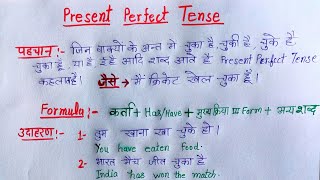 Present Perfect Tense
पहचान :- जिन वाक्यो के अन्त मे चुका है, चुकी है, चुके है
चुका हूँ, या है, ई है आदि शब्द आते है Present Perfect Tense
कहलाता है। जैसे - मैं क्रिकेट खेल चुका हूँ।
Formula :- कर्ता + Has/Have + मुख्य क्रिया III Form + अन्य शब्द
उदाहरण :- 1. तुम खाना खा चुके हो।
You have eaten food.
2- भारत मैच जीत चुका है
India has won the match.